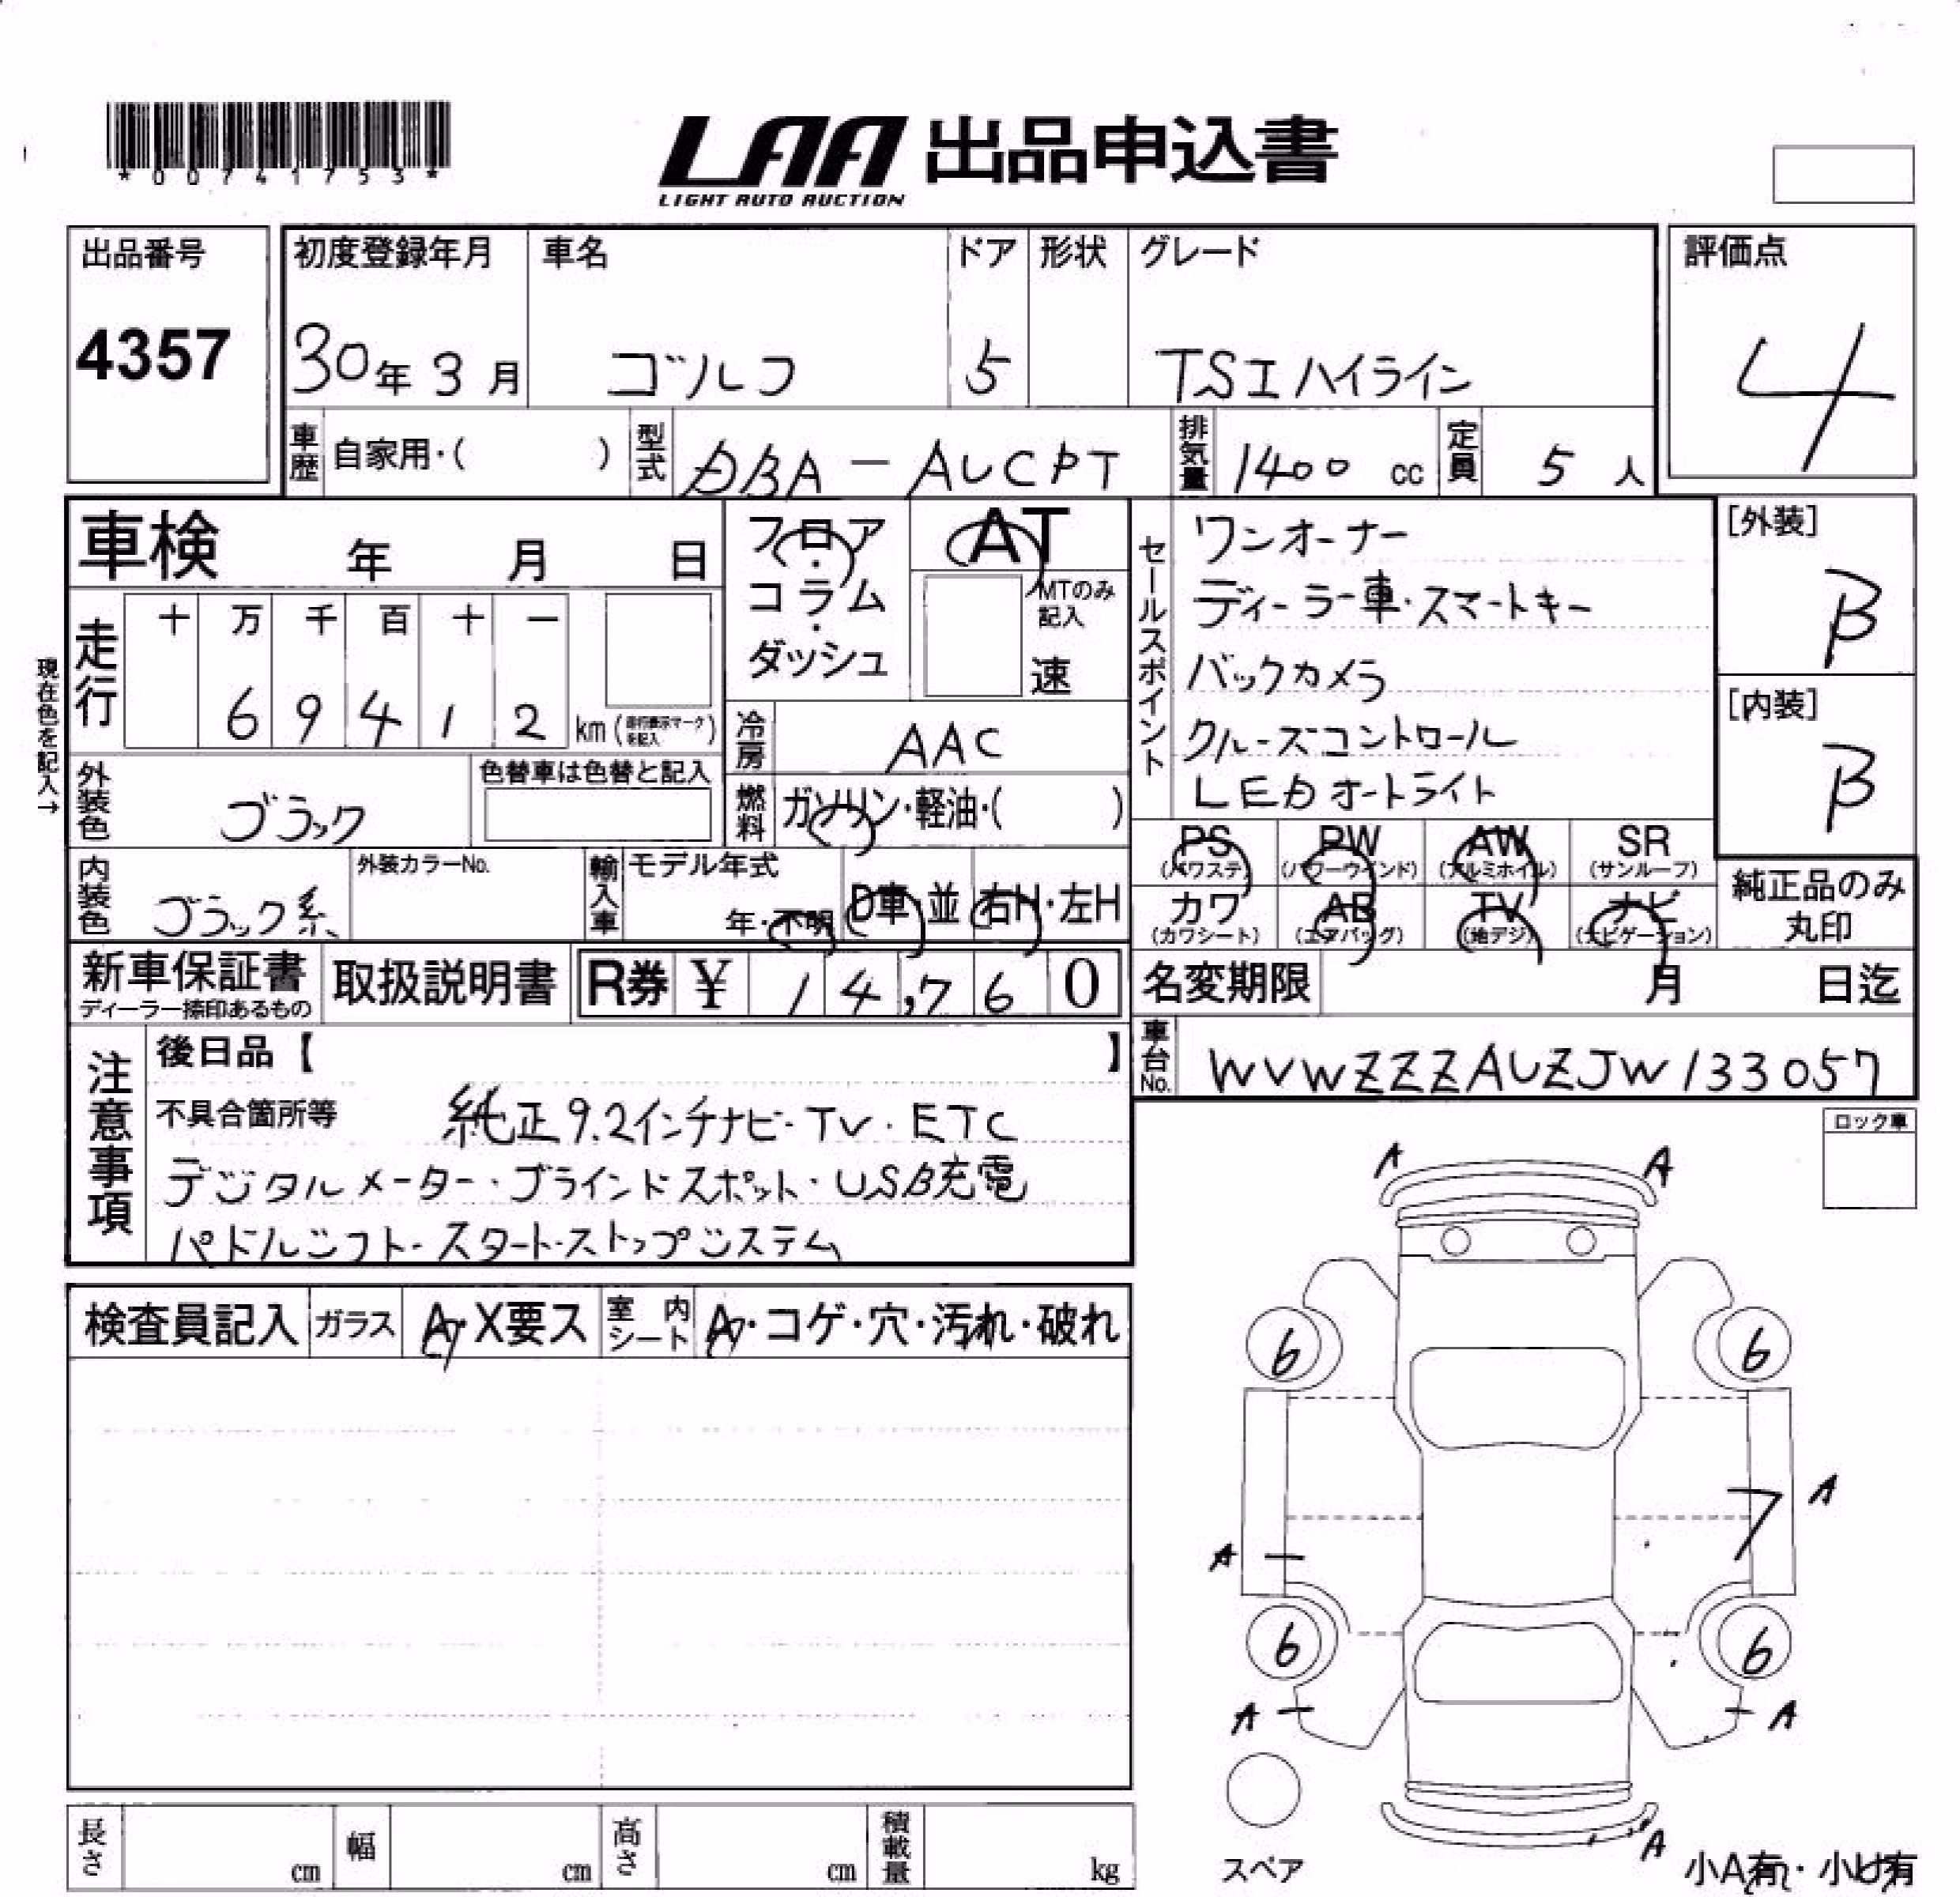 *00741753*
LAA 出品申込書
LIGHT AUTO AUCTION
出品番号
4357
初度登録年月
30年 3月
車名
ゴルフ
ドア
5
形状
グレード
TSI ハイライン
評価点
4
車歴 自家用・( )
型式 DBA - AUCPT
排気量 1400 cc
定員 5 人
車検 年 月 日
フロア・コラム・ダッシュ
AT
MTのみ記入
速
現在色を記入→
走行
十 万 千 百 十 一
6 9 4 1 2 km
冷房 AAC
外装色 ブラック
色替車は色替と記入
燃料 ガソリン・軽油・( )
内装色 ブラック系
外装カラーNo.
輸入車
モデル年式
年・不明
D車・並
右H・左H
セールスポイント
ワンオーナー
ディーラー車・スマートキー
バックカメラ
クルーズコントロール
LEDオートライト
[外装]
B
[内装]
B
PS (パワステ)
PW (パワーウインド)
AW (アルミホイル)
SR (サンルーフ)
カワ (カワシート)
AB (エアバッグ)
TV (地デジ)
ナビ (ナビゲーション)
純正品のみ
丸印
新車保証書
ディーラー捺印あるもの
取扱説明書
R券 ¥ 14,760
名変期限 月 日迄
車台No. WVWZZZAUZJW133057
注意事項
後日品【 】
不具合箇所等 純正9.2インチナビ・TV・ETC
デジタルメーター・ブラインドスポット・USB充電
パドルシフト・スタートストップシステム
ロック車
検査員記入
ガラス A・X要ス
室内シート A・コゲ・穴・汚れ・破れ
A A
6 6
A
A
6 6
A A
A
スペア
小A有・小U有
長さ cm
幅 cm
高さ cm
積載量 kg